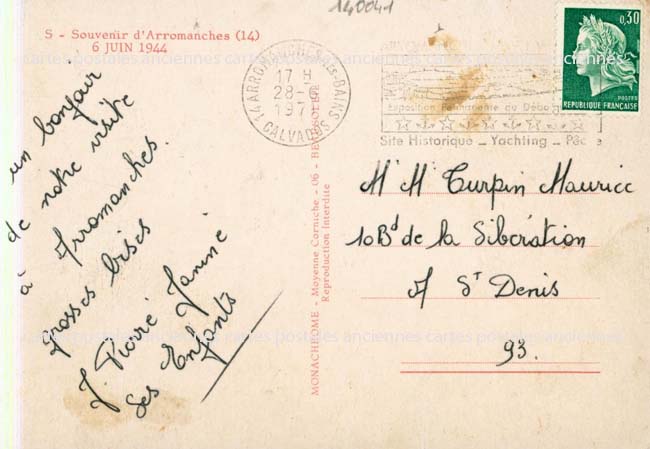 140041
S - Souvenir d'Arromanches (14)
6 JUIN 1944
un bonjour
de notre visite
à Arromanches.
grosses bises
J. Pierre Janine
Ses Enfants
14 ARROMANCHES-LES-BAINS
17 H
28-
197
CALVADOS
Exposition Permanente du Débarq
Site Historique _ Yachting _ Pêche
0,30
POSTES
REPUBLIQUE FRANÇAISE
MONACHROME - Moyenne Corniche - 06 - BEAUSOLEIL
Reproduction Interdite
Mr M Turpin Maurice
10 Bd de la Libération
A St Denis
93.
cartes postales anciennes cartes postales anciennes cartes postales anciennes
cartes postales anciennes cartes postales anciennes cartes postales anciennes